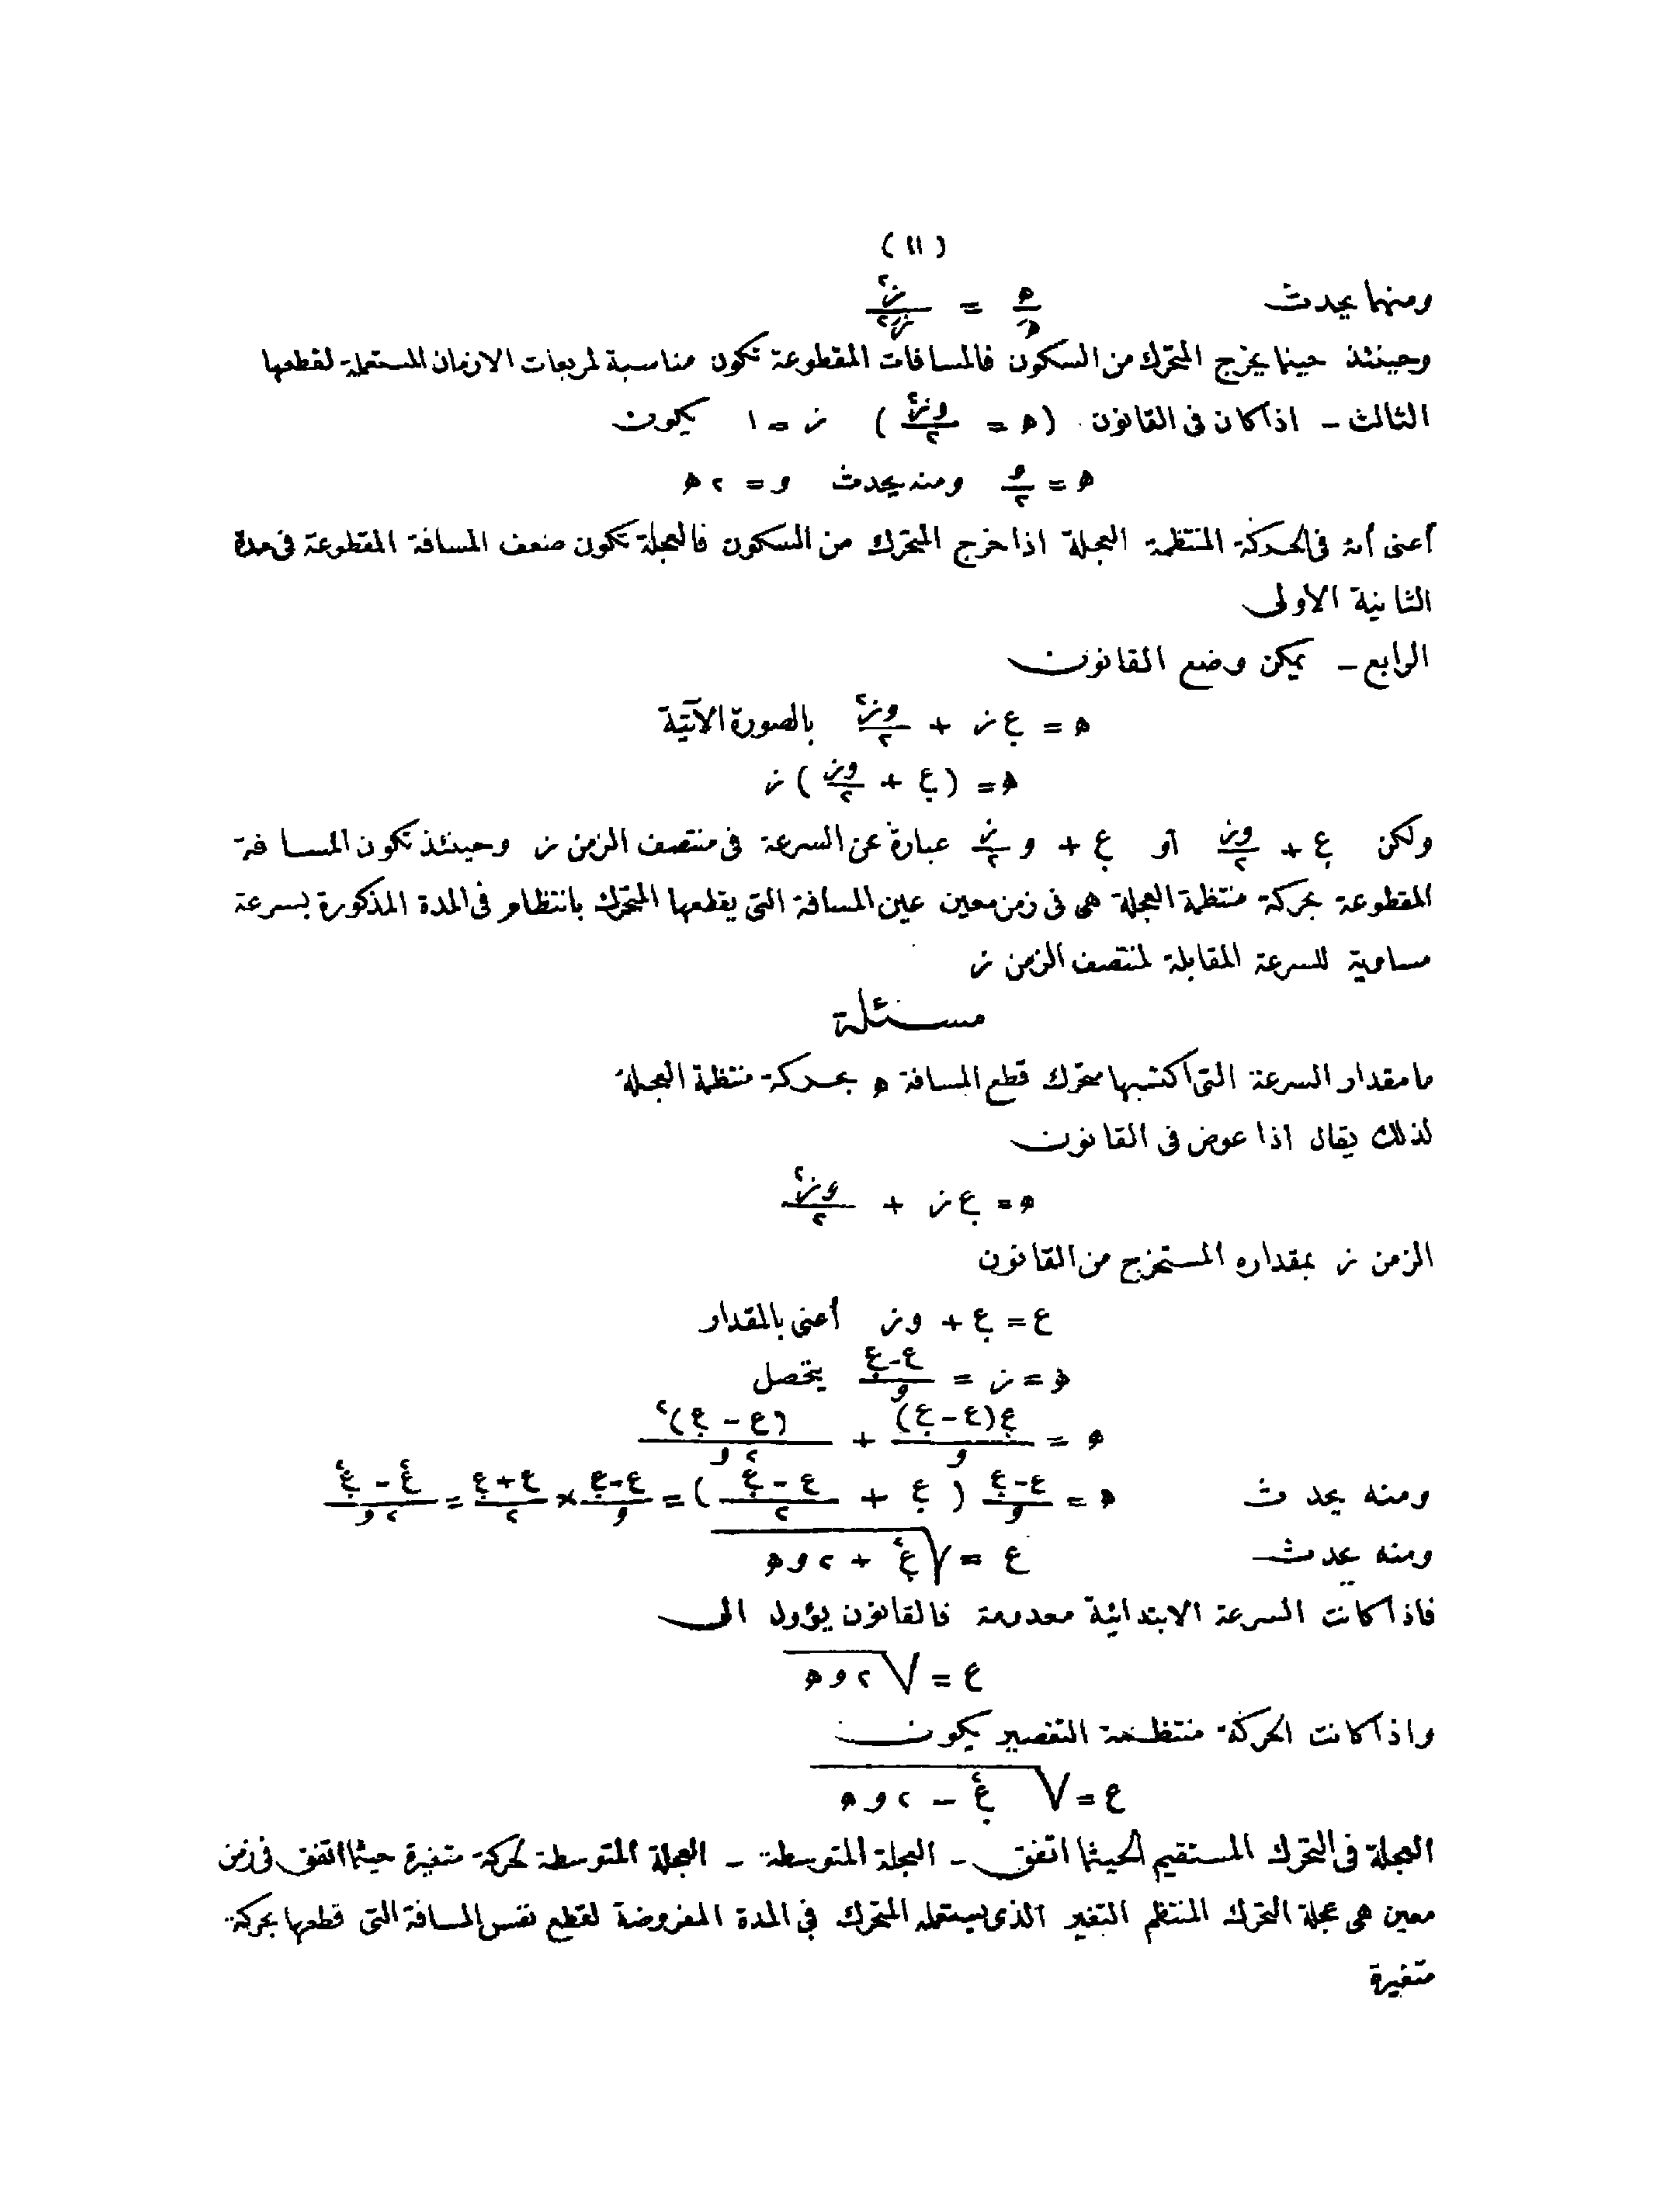 (١١)
ومنها يحدث ه/هَ = ز٢/زَ٢
وحينئذ حينما يخرج المتحرك من السكون فالمسافات المقطوعة تكون مناسبة لمربعات الازمان المستعملة لقطعها
الثالث - اذا كان فى القانون (ه = وز٢/٢) ز = ١ يكون
ه = و/٢ ومنه يحدث و = ٢ ه
أعنى أنه فى الحركة المنتظمة العجلة اذا خرج المتحرك من السكون فالعجلة تكون ضعف المسافة المقطوعة فى مدة
الثانية الاولى
الرابع - يمكن وضع القانون
ه = ع. ز + وز٢/٢ بالصورة الآتية
ه = (ع. + وز/٢) ز
ولكن ع. + وز/٢ أو ع. + و ز/٢ عبارة عن السرعة فى منتصف الزمن ز وحينئذ تكون المسافة
المقطوعة بحركة منتظمة العجلة هى فى زمن معين عين المسافة التى يقطعها المتحرك بانتظام فى المدة المذكورة بسرعة
مساوية للسرعة المقابلة لمنتصف الزمن ز
مسئلة
ما مقدار السرعة التى اكتسبها متحرك قطع المسافة ه بحركة منتظمة العجلة
لذلك يقال اذا عوض فى القانون
ه = ع. ز + وز٢/٢
الزمن ز بمقداره المستخرج من القانون
ع = ع. + وز أعنى بالمقدار
ه = ز = ع-ع./و يتحصل
ه = ع.(ع-ع.)/و + (ع-ع.)٢/٢و
ومنه يحدث ه = ع-ع./و (ع. + ع-ع./٢) = ع-ع./و × ع+ع./٢ = ع٢-ع.٢/٢و
ومنه يحدث ع = √(ع.٢ + ٢ وه)
فاذا كانت السرعة الابتدائية معدومة فالقانون يؤول الى
ع = √(٢ وه)
واذا كانت الحركة منتظمة التقصير يكون
ع = √(ع.٢ - ٢ وه)
العجلة فى التحرك المستقيم الحيثما اتفق - العجلة المتوسطة - العجلة المتوسطة لحركة متغيرة حيثما اتفق فى زمن
معين هى عجلة التحرك المنتظم التغير الذى يستعمله المتحرك فى المدة المفروضة لقطع نفس المسافة التى قطعها بحركة
متغيرة